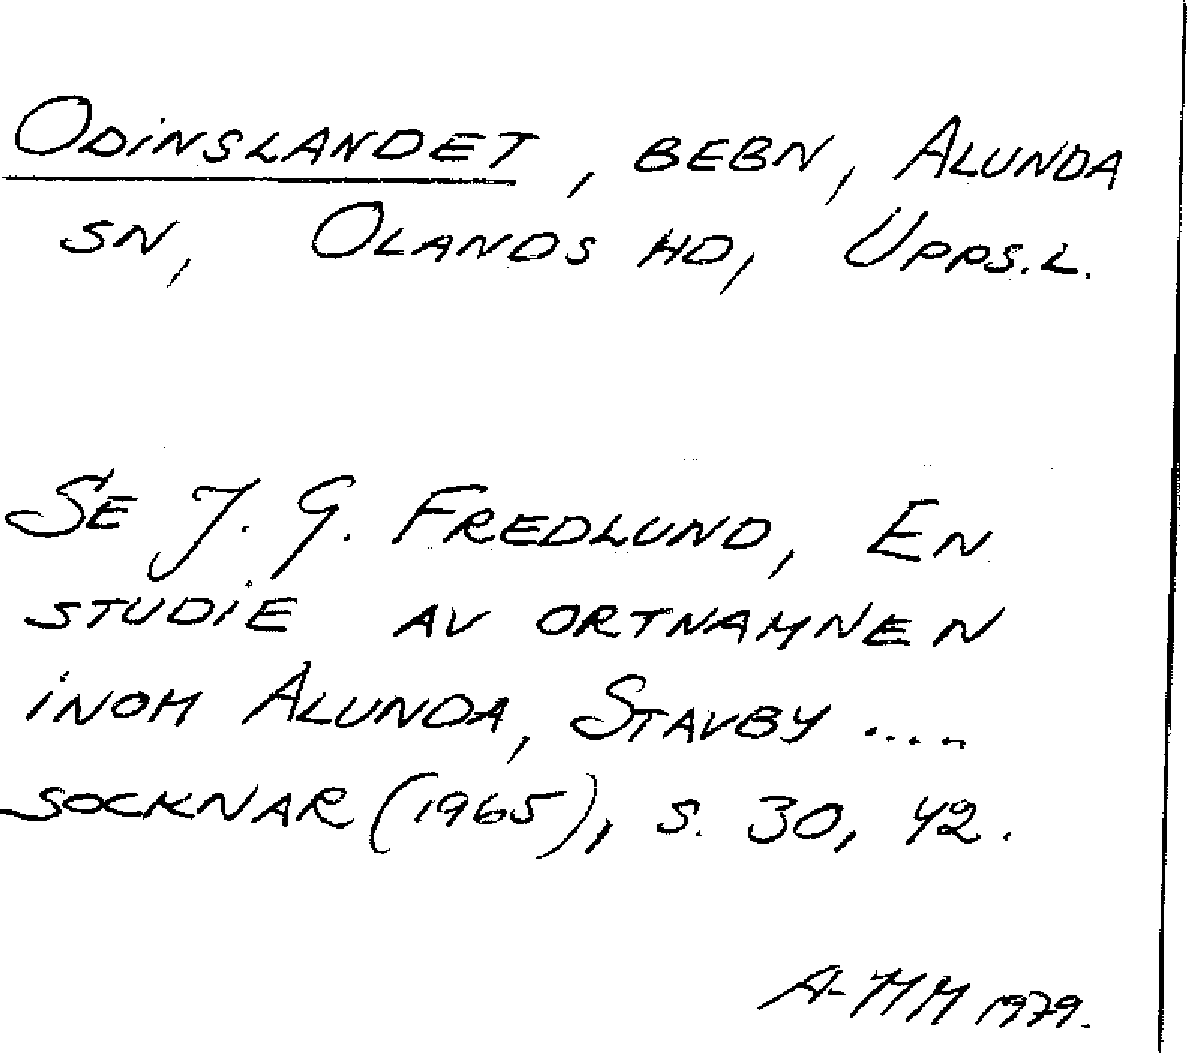 Odinslandet, bebn, Alunda
sn, Olands hd, Upps.l.
Se J. G. Fredlund, En
studie av ortnamnen
inom Alunda, Stavby ....
socknar (1965), s. 30, 42.
A-MM 1979.